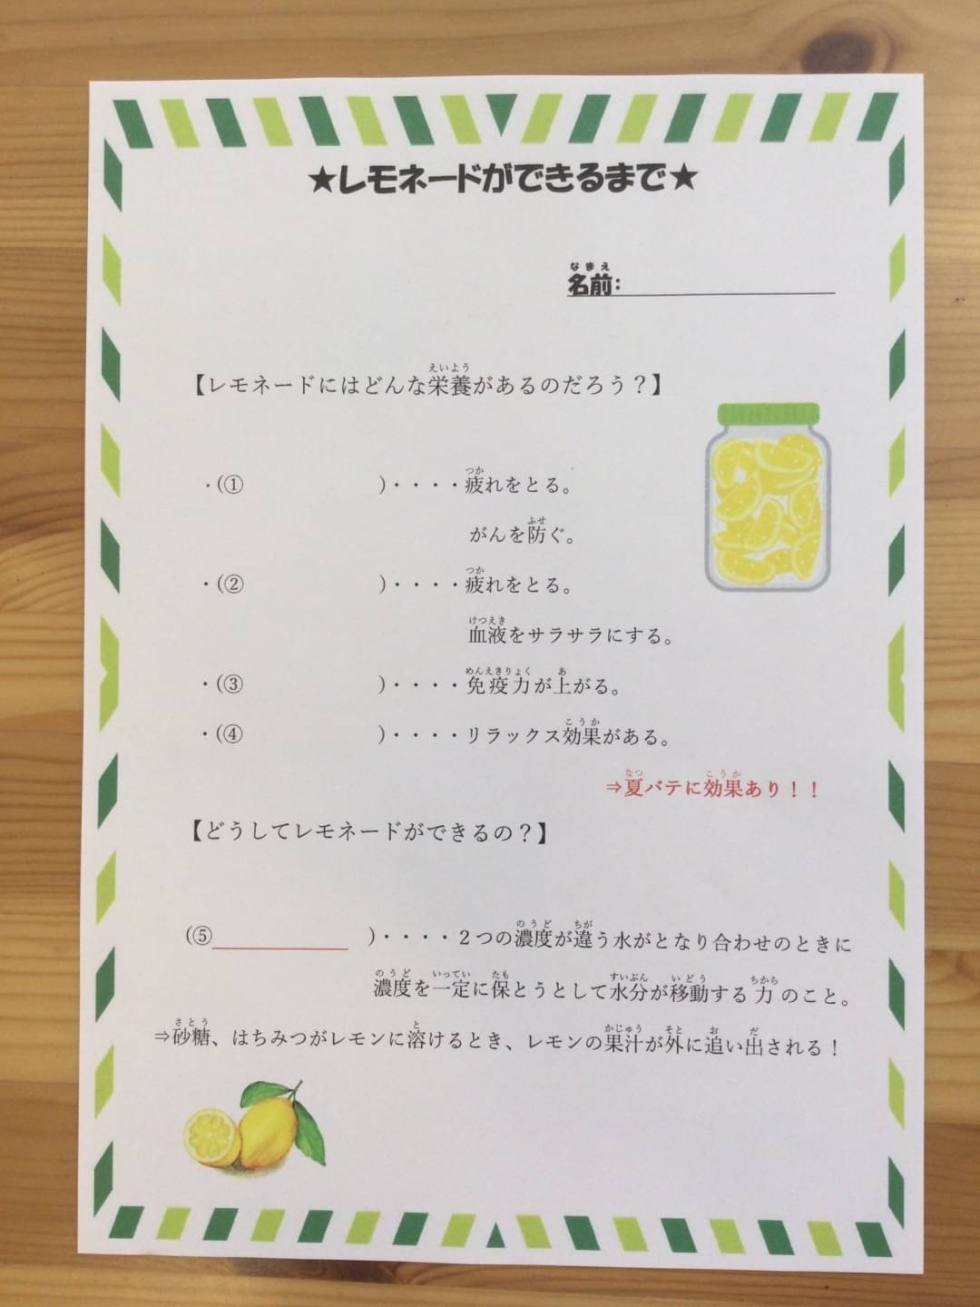 ★レモネードができるまで★
なまえ
名前:
えいよう
【レモネードにはどんな栄養があるのだろう？】
つか
・(① )・・・・疲れをとる。
ふせ
がんを防ぐ。
つか
・(② )・・・・疲れをとる。
けつえき
血液をサラサラにする。
めんえきりょく あ
・(③ )・・・・免疫力が上がる。
こうか
・(④ )・・・・リラックス効果がある。
なつ こうか
⇒夏バテに効果あり！！
【どうしてレモネードができるの？】
のうど ちが
(⑤ )・・・・２つの濃度が違う水がとなり合わせのときに
のうど いってい たも すいぶん いどう ちから
濃度を一定に保とうとして水分が移動する力のこと。
さとう と かじゅう そと お だ
⇒砂糖、はちみつがレモンに溶けるとき、レモンの果汁が外に追い出される！